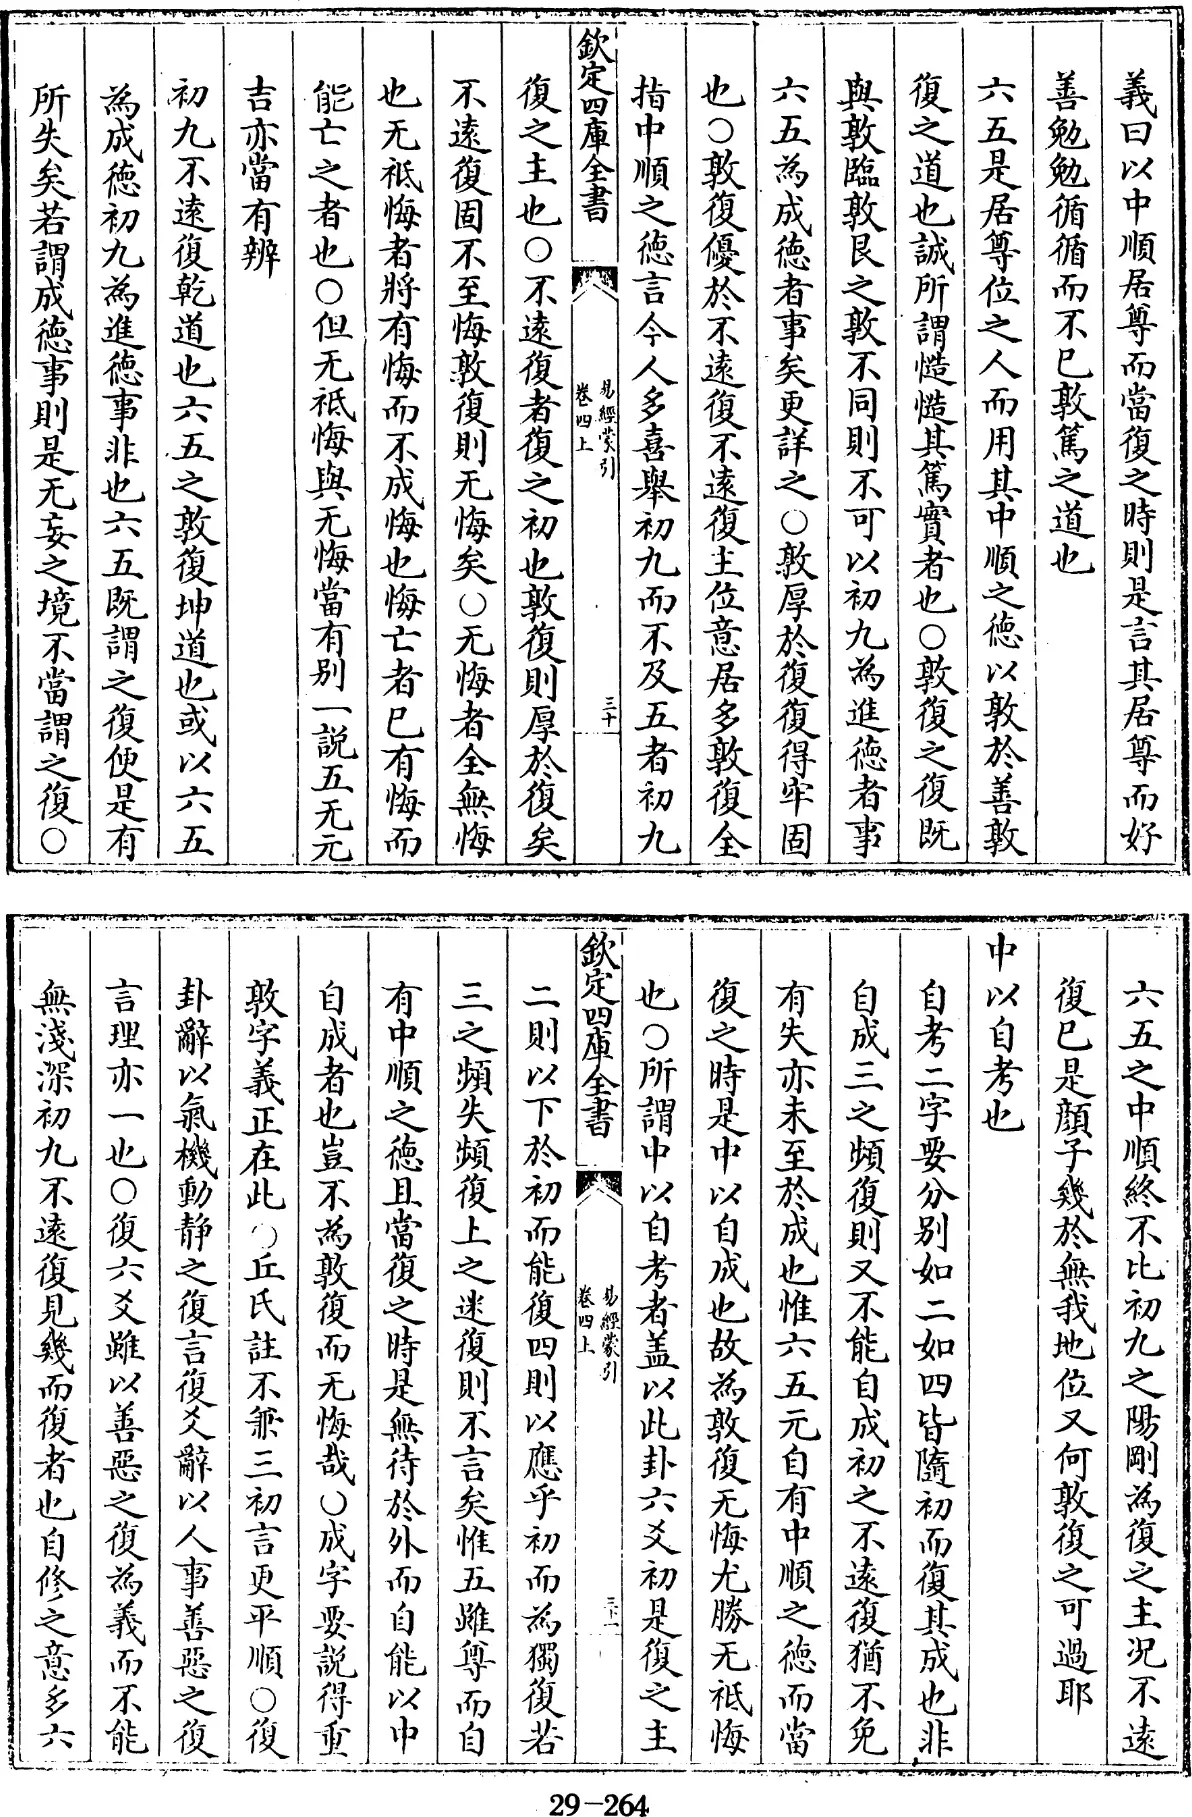 義曰以中順居尊而當復之時則是言其居尊而好
善勉勉循循而不已敦篤之道也
六五是居尊位之人而用其中順之徳以敦於善敦
復之道也誠所謂慥慥其篤實者也○敦復之復既
與敦臨敦艮之敦不同則不可以初九為進徳者事
六五為成徳者事矣更詳之○敦厚於復復得牢固
也○敦復優於不遠復不遠復主位意居多敦復全
指中順之徳言今人多喜舉初九而不及五者初九
欽定四庫全書
易經蒙引
卷四上
三十
復之主也○不遠復者復之初也敦復則厚於復矣
不遠復固不至悔敦復則无悔矣○无悔者全無悔
也无祗悔者將有悔而不成悔也悔亡者已有悔而
能亡之者也○但无祗悔與无悔當有别一説五无元
吉亦當有辨
初九不遠復乾道也六五之敦復坤道也或以六五
為成徳初九為進徳事非也六五既謂之復便是有
所失矣若謂成徳事則是无妄之境不當謂之復○
六五之中順終不比初九之陽剛為復之主況不遠
復已是顔子幾於無我地位又何敦復之可過耶
中以自考也
自考二字要分别如二如四皆隨初而復其成也非
自成三之頻復則又不能自成初之不遠復猶不免
有失亦未至於成也惟六五元自有中順之徳而當
復之時是中以自成也故為敦復无悔尤勝无祗悔
也○所謂中以自考者盖以此卦六爻初是復之主
欽定四庫全書
易經蒙引
卷四上
三十一
二則以下於初而能復四則以應乎初而為獨復若
三之頻失頻復上之迷復則不言矣惟五雖尊而自
有中順之徳且當復之時是無待於外而自能以中
自成者也豈不為敦復而无悔哉○成字要説得重
敦字義正在此○丘氏註不兼三初言更平順○復
卦辭以氣機動静之復言復爻辭以人事善惡之復
言理亦一也○復六爻雖以善惡之復為義而不能
無淺深初九不遠復見幾而復者也自修之意多六
29-264